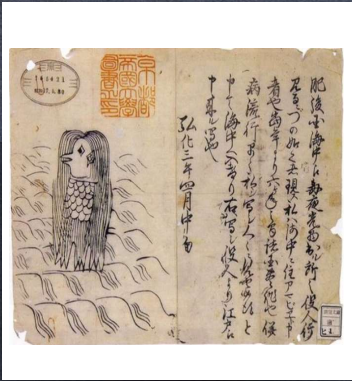 肥後国海中え毎夜光物出ル所之役人行
見るニづの如之者現ス私ハ海中ニ住アマビヱト申
者也当年より六ヶ年之間諸国豊作也併
病流行早々私写シ人々ニ見セ候得と
申て海中へ入けり右写シ役人より江戸え
申来ル写也
弘化三年四月中旬
京都
帝國大學
圖書之印